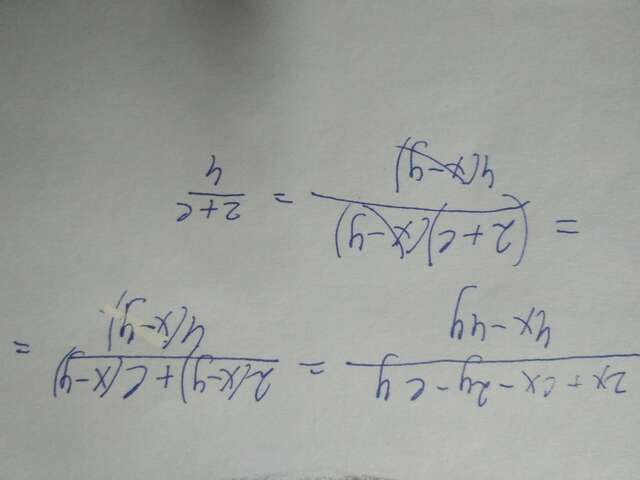 (2x + cx - 2y - cy)/(4x - 4y) = (2(x-y) + c(x-y))/(4(x-y)) =
= ((2+c)(x-y))/(4(x-y)) = (2+c)/4